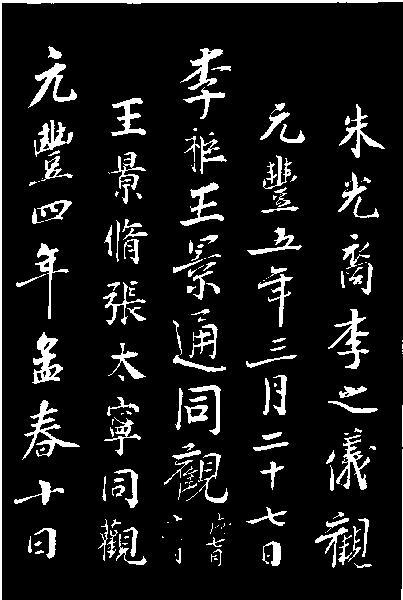 朱光裔李之儀觀
元豐五年三月二十七日
李秬王景通同觀
王景脩張太寧同觀
元豐四年孟春十日